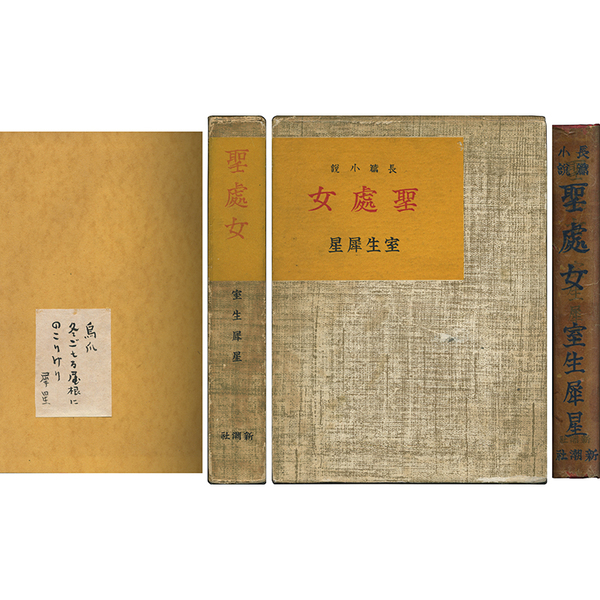 烏瓜
冬ごもる屋根に
のこりけり
犀星
聖處女
室生犀星
新潮社
長篇小說
聖處女
室生犀星
長篇
小說
聖處女
室生犀星
新潮社